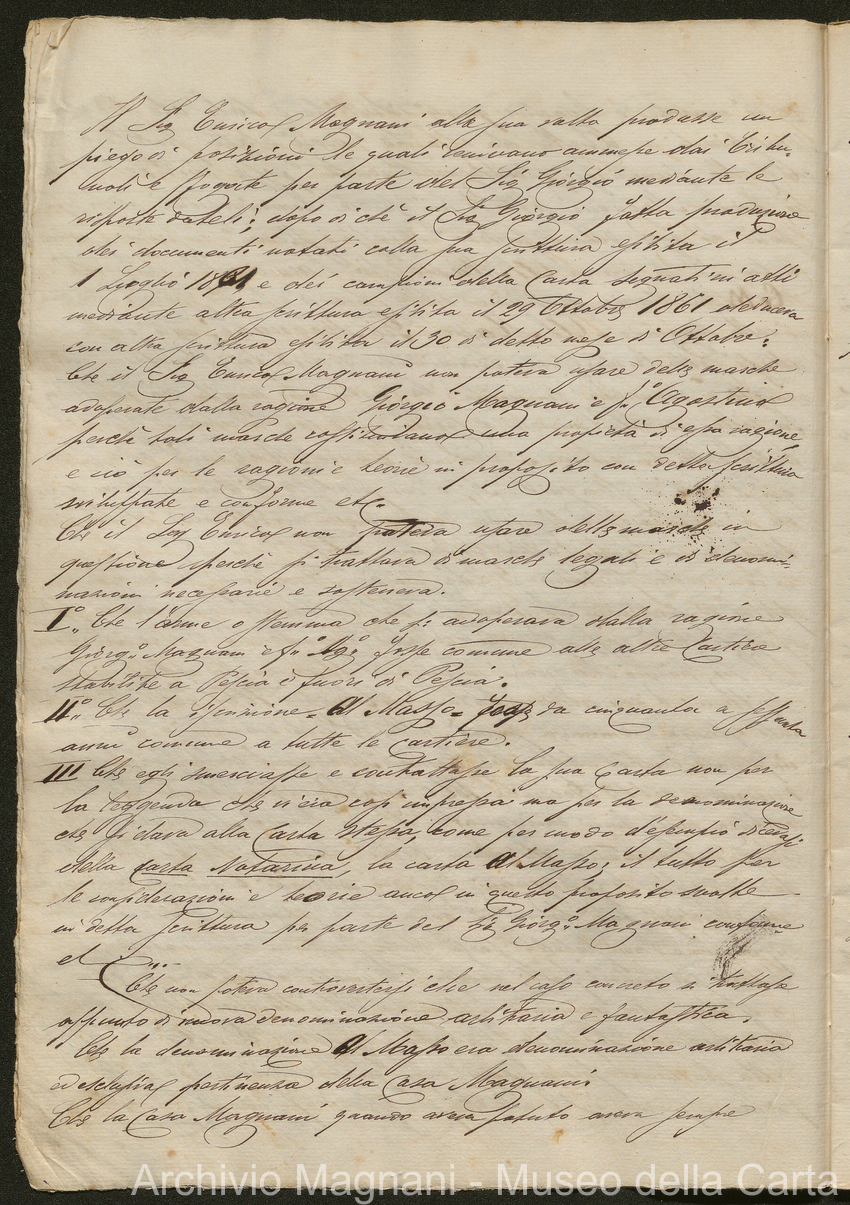 Il Sig Enrico Magnani alla sua volta produsse un
piego di posizioni le quali venivano ammesse dai Tribu-
nali e per parte del Sig Giorgio mediante le
risposte dateli; dopo di che il Sig Giorgio fatta produzione
dei documenti notati colla sua scrittura esibita il
1 Luglio 1861 e dei campioni della Carta segnati in atti
mediante altra scrittura esibita il 29 Ottobre 1861
con altra scrittura esibita il 30 di detto mese di Ottobre:
Che il Sig Enrico Magnani non poteva usare delle marche
adoperate dalla ragione Giorgio Magnani e fu Agostino
perchè tali marche costituivano una proprietà di essa ragione
e ciò per le ragioni e teorie in proposito con detta scrittura
sviluppate e conforme etc.
Che il Sig Enrico non poteva usare delle marche in
questione perchè si trattava di marche legali e di denomi-
nazioni necessarie e sosteneva.
I.° Che l'arme o stemma che si adoperava dalla ragione
Giorg.° Magnani e fu Ag.° fosse comune alle altre Cartiere
stabilite a Pescia e fuori di Pescia.
II.° Che la iscrizione = Al Masso = fosse da cinquanta a sessanta
anni comune a tutte le cartiere.
III Che egli smerciasse e contrattasse la sua Carta non per
la leggenda che vi era così impressa ma per la denominazione
che si dava alla Carta stessa, come per modo d'esempio
della carta Notarina, la carta Al Masso; il tutto per
le considerazioni e teorie ancor in questo proposito svolte
in detta scrittura per parte del Sig Giorg.° Magnani conforme
et ....
Che non poteva controvertersi che nel caso concreto si trattasse
appunto di nuova denominazione arbitraria e fantastica.
Che la denominazione Al Masso era denominazione arbitraria
ed esclusiva pertinenza della Casa Magnani
Che la Casa Magnani quando aveva potuto aveva sempre
Archivio Magnani - Museo della Carta